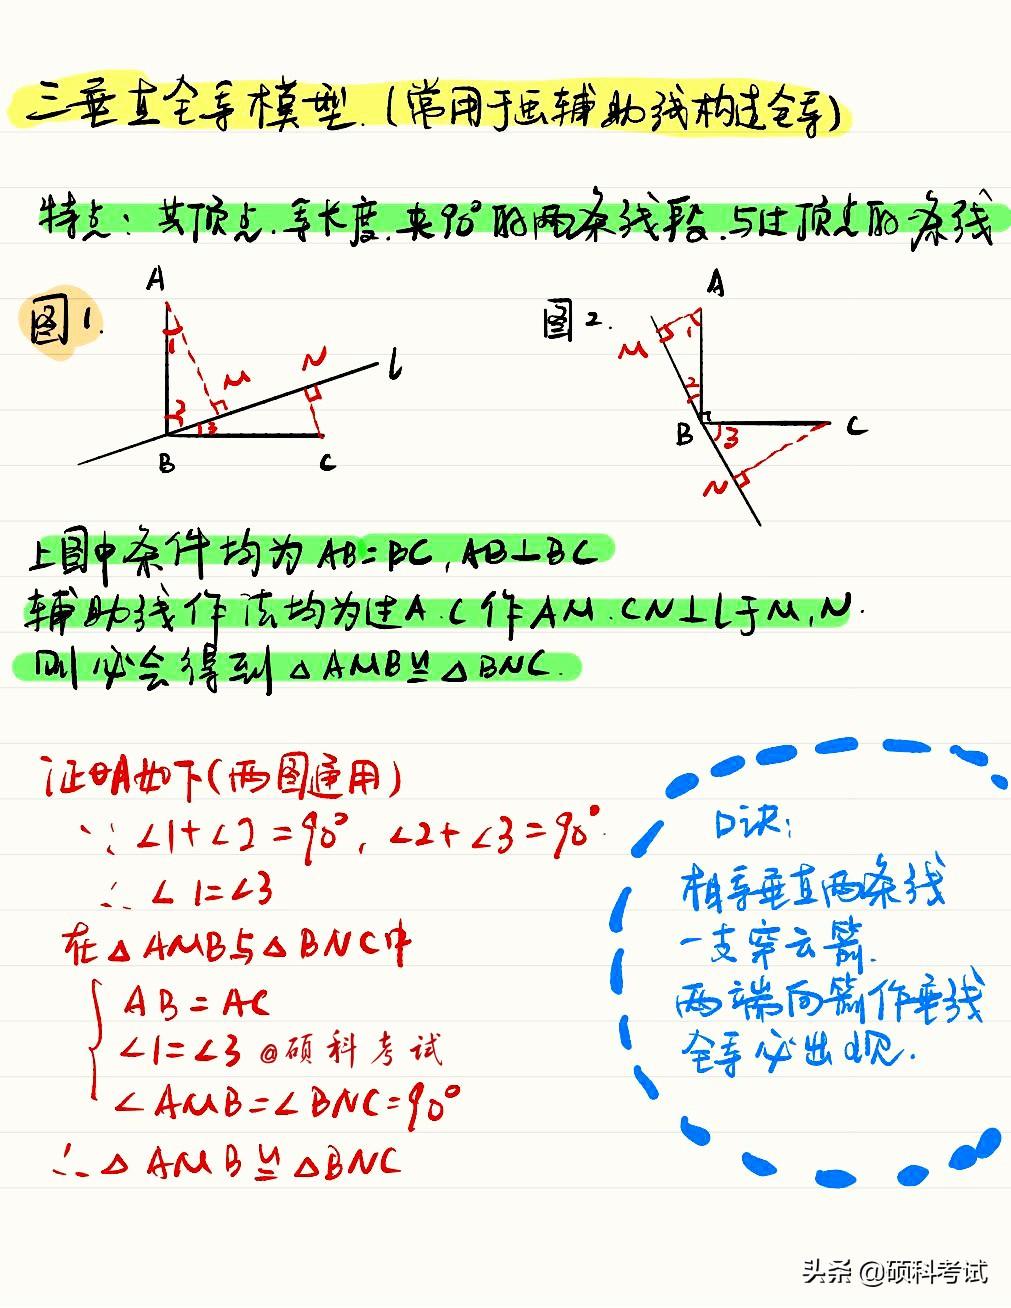 三垂直全等模型.(常用于画辅助线构造全等)
特点:共顶点.等长度.夹90°的两条线段.与过顶点的一条线
图1.
A
1
2
3
M
N
l
B
C
图2.
A
M
1
2
B
3
C
N
上图中条件均为AB=BC,AB⊥BC
辅助线作法均为过A.C作AM.CN⊥l于M,N.
则必会得到△AMB≌△BNC.
证明如下(两图通用)
∵∠1+∠2=90°,∠2+∠3=90°.
∴∠1=∠3
在△AMB与△BNC中
AB=AC
∠1=∠3 @硕科考试
∠AMB=∠BNC=90°
∴△AMB≌△BNC
口诀:
相等垂直两条线
一支穿云箭.
两端向箭作垂线
全等必出现.
头条 @硕科考试